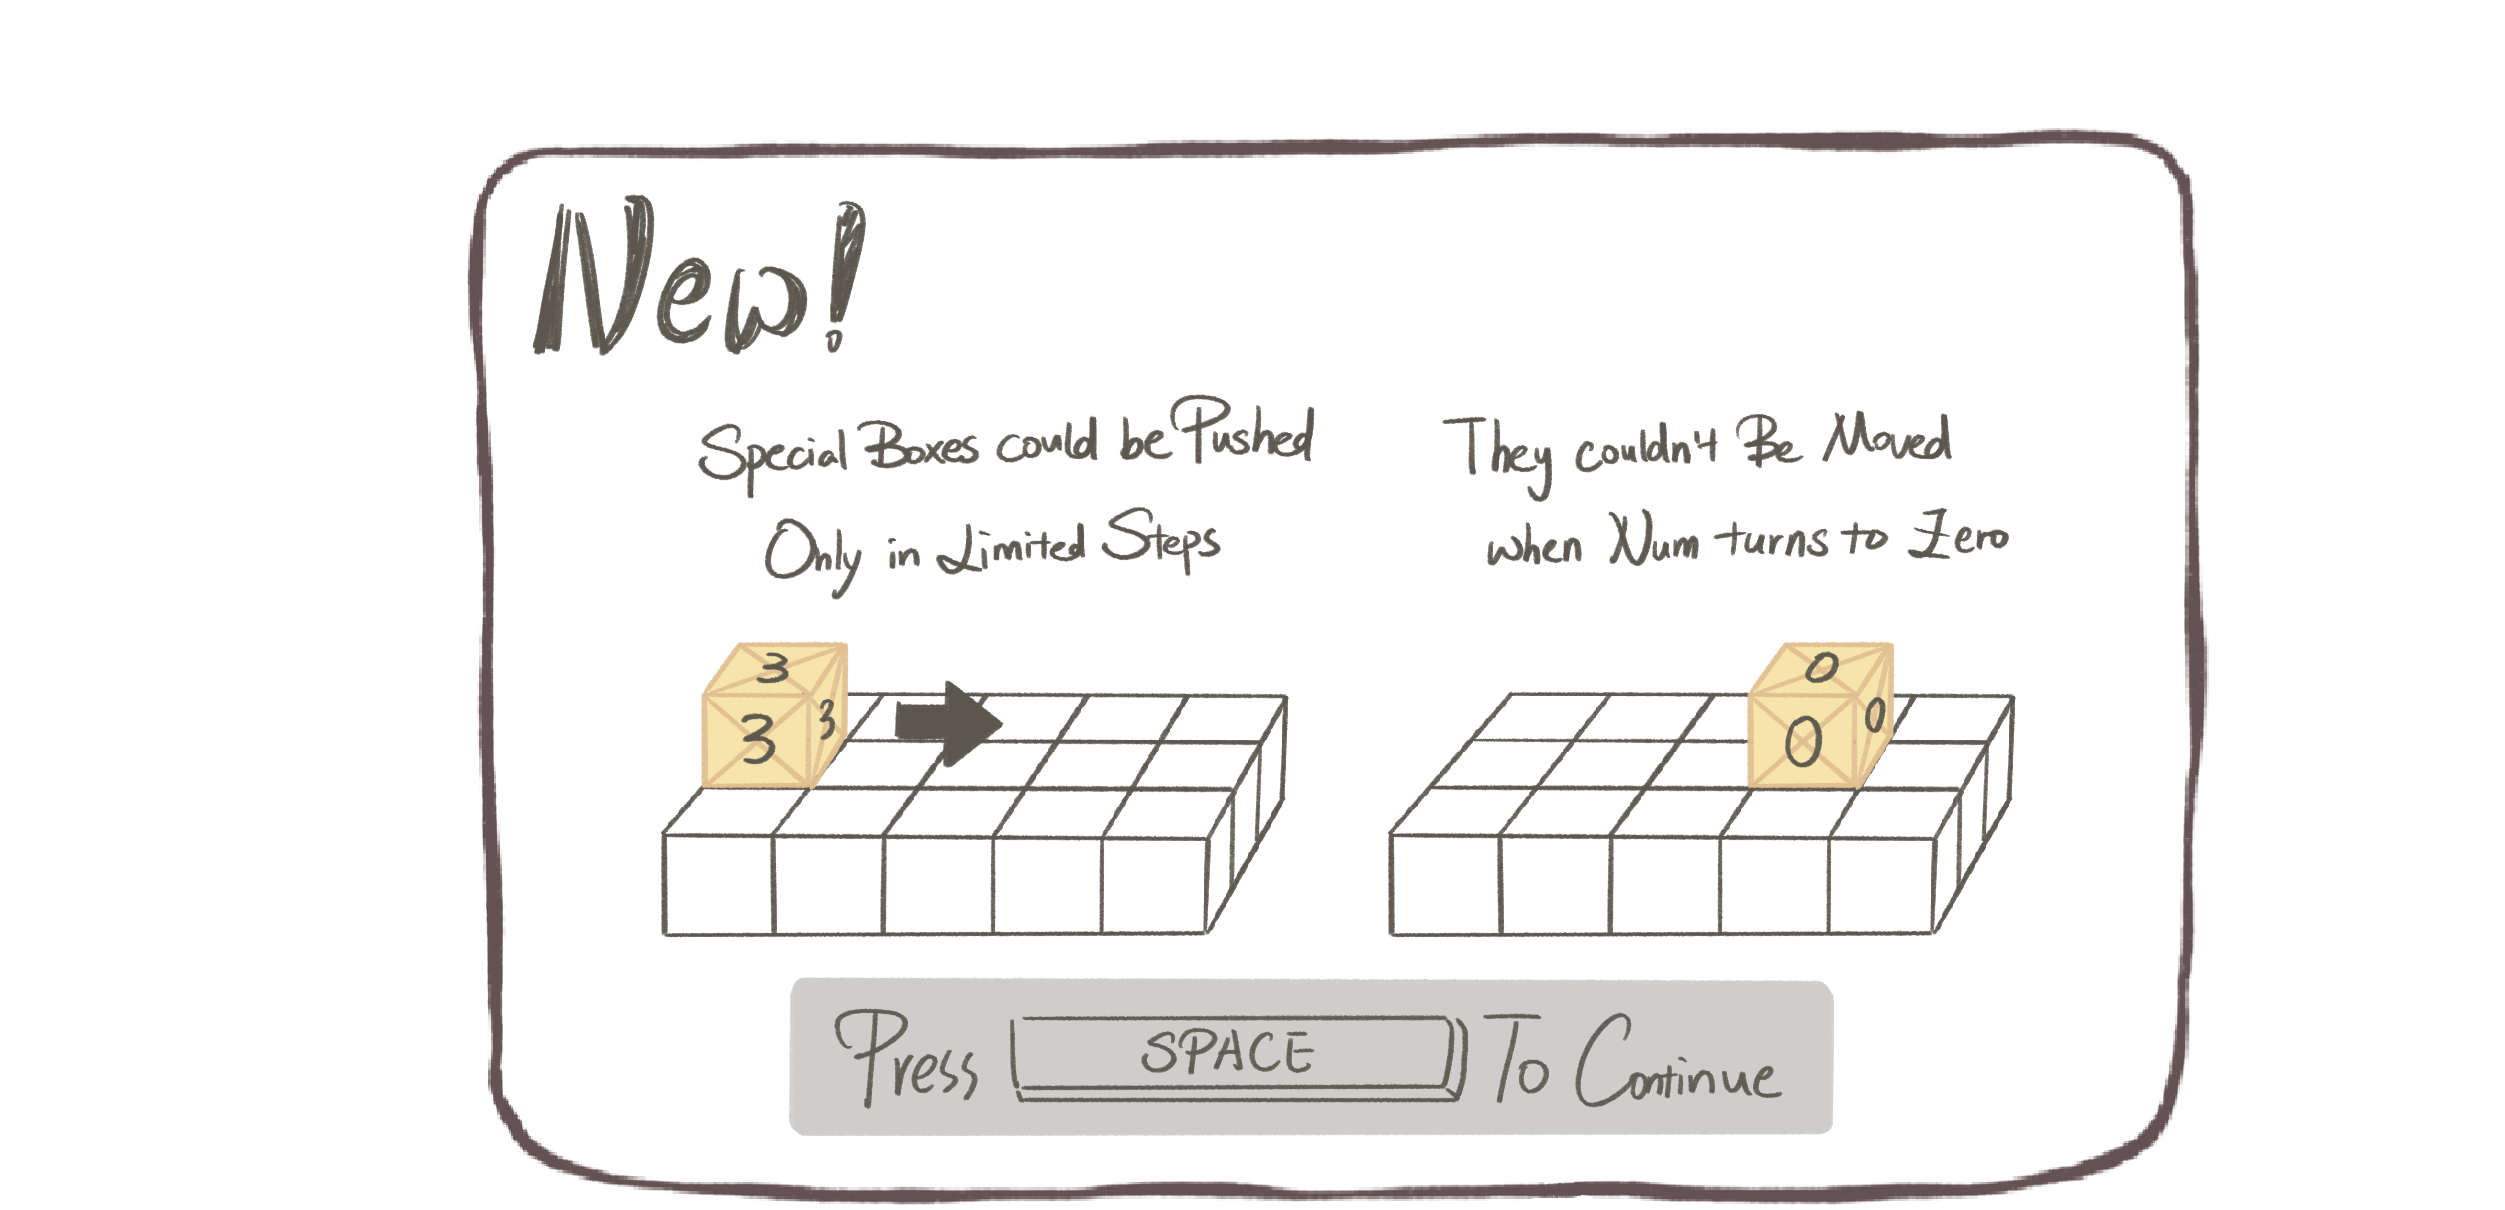 New!
Special Boxes could be Pushed
Only in Limited Steps
They couldn't Be Moved
when Num turns to Zero
3
3
3
0
0
0
Press SPACE To Continue